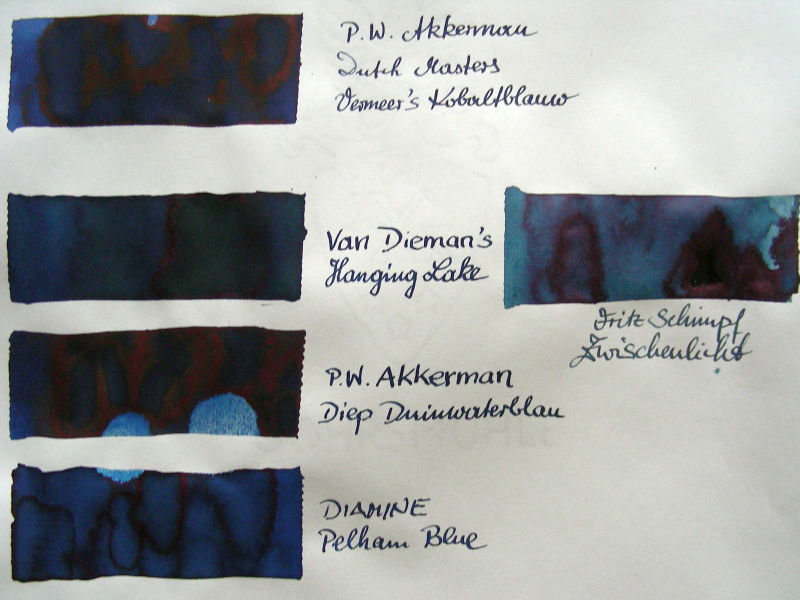 P.W. Akkerman
Dutch Masters
Vermeer's Kobaltblauw
Van Dieman's
Hanging Lake
Fritz Schimpf
Zwischenlicht
P.W. Akkerman
Diep Duinwaterblau
DIAMINE
Pelham Blue